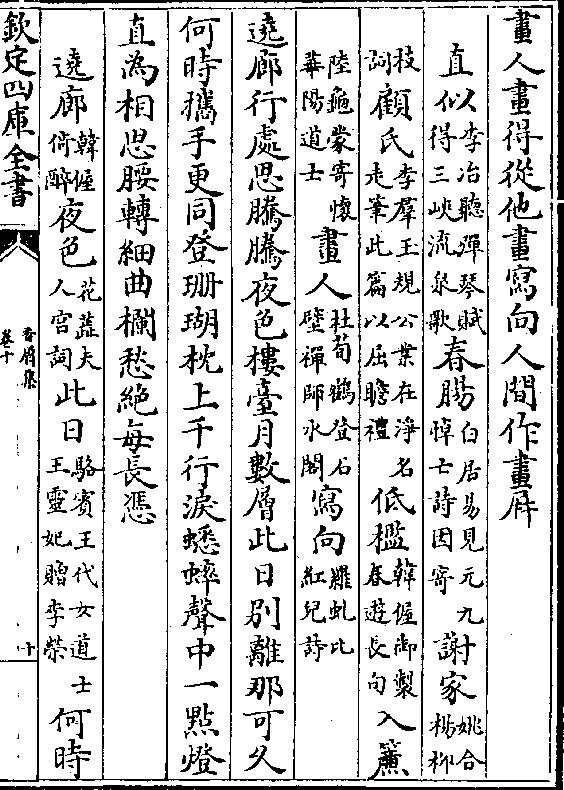 畫人畫得從他畫寫向人間作畫屏
直似以李冶聽彈琴賦得三峽流泉歌春腸白居易見元九悼亡詩因寄謝家姚合楊柳
枝詞顧氏李羣玉規公業在淨名走筆此篇以屈瞻禮低檻韓偓御製春遊長句入簾
陸龜蒙寄懷華陽道士畫人杜荀鶴登石壁禪師水閣寫向羅虬比紅兒詩
遶廊行處思騰騰夜色樓臺月數層此日別離那可久
何時攜手更同登珊瑚枕上千行淚蟋蟀聲中一點燈
直為相思腰轉細曲欄愁絶每長憑
遶廊韓偓倚醉夜色花蕊夫人宮詞此日駱賓王代女道士王靈妃贈李榮何時
欽定四庫全書
香屑集
卷十
十